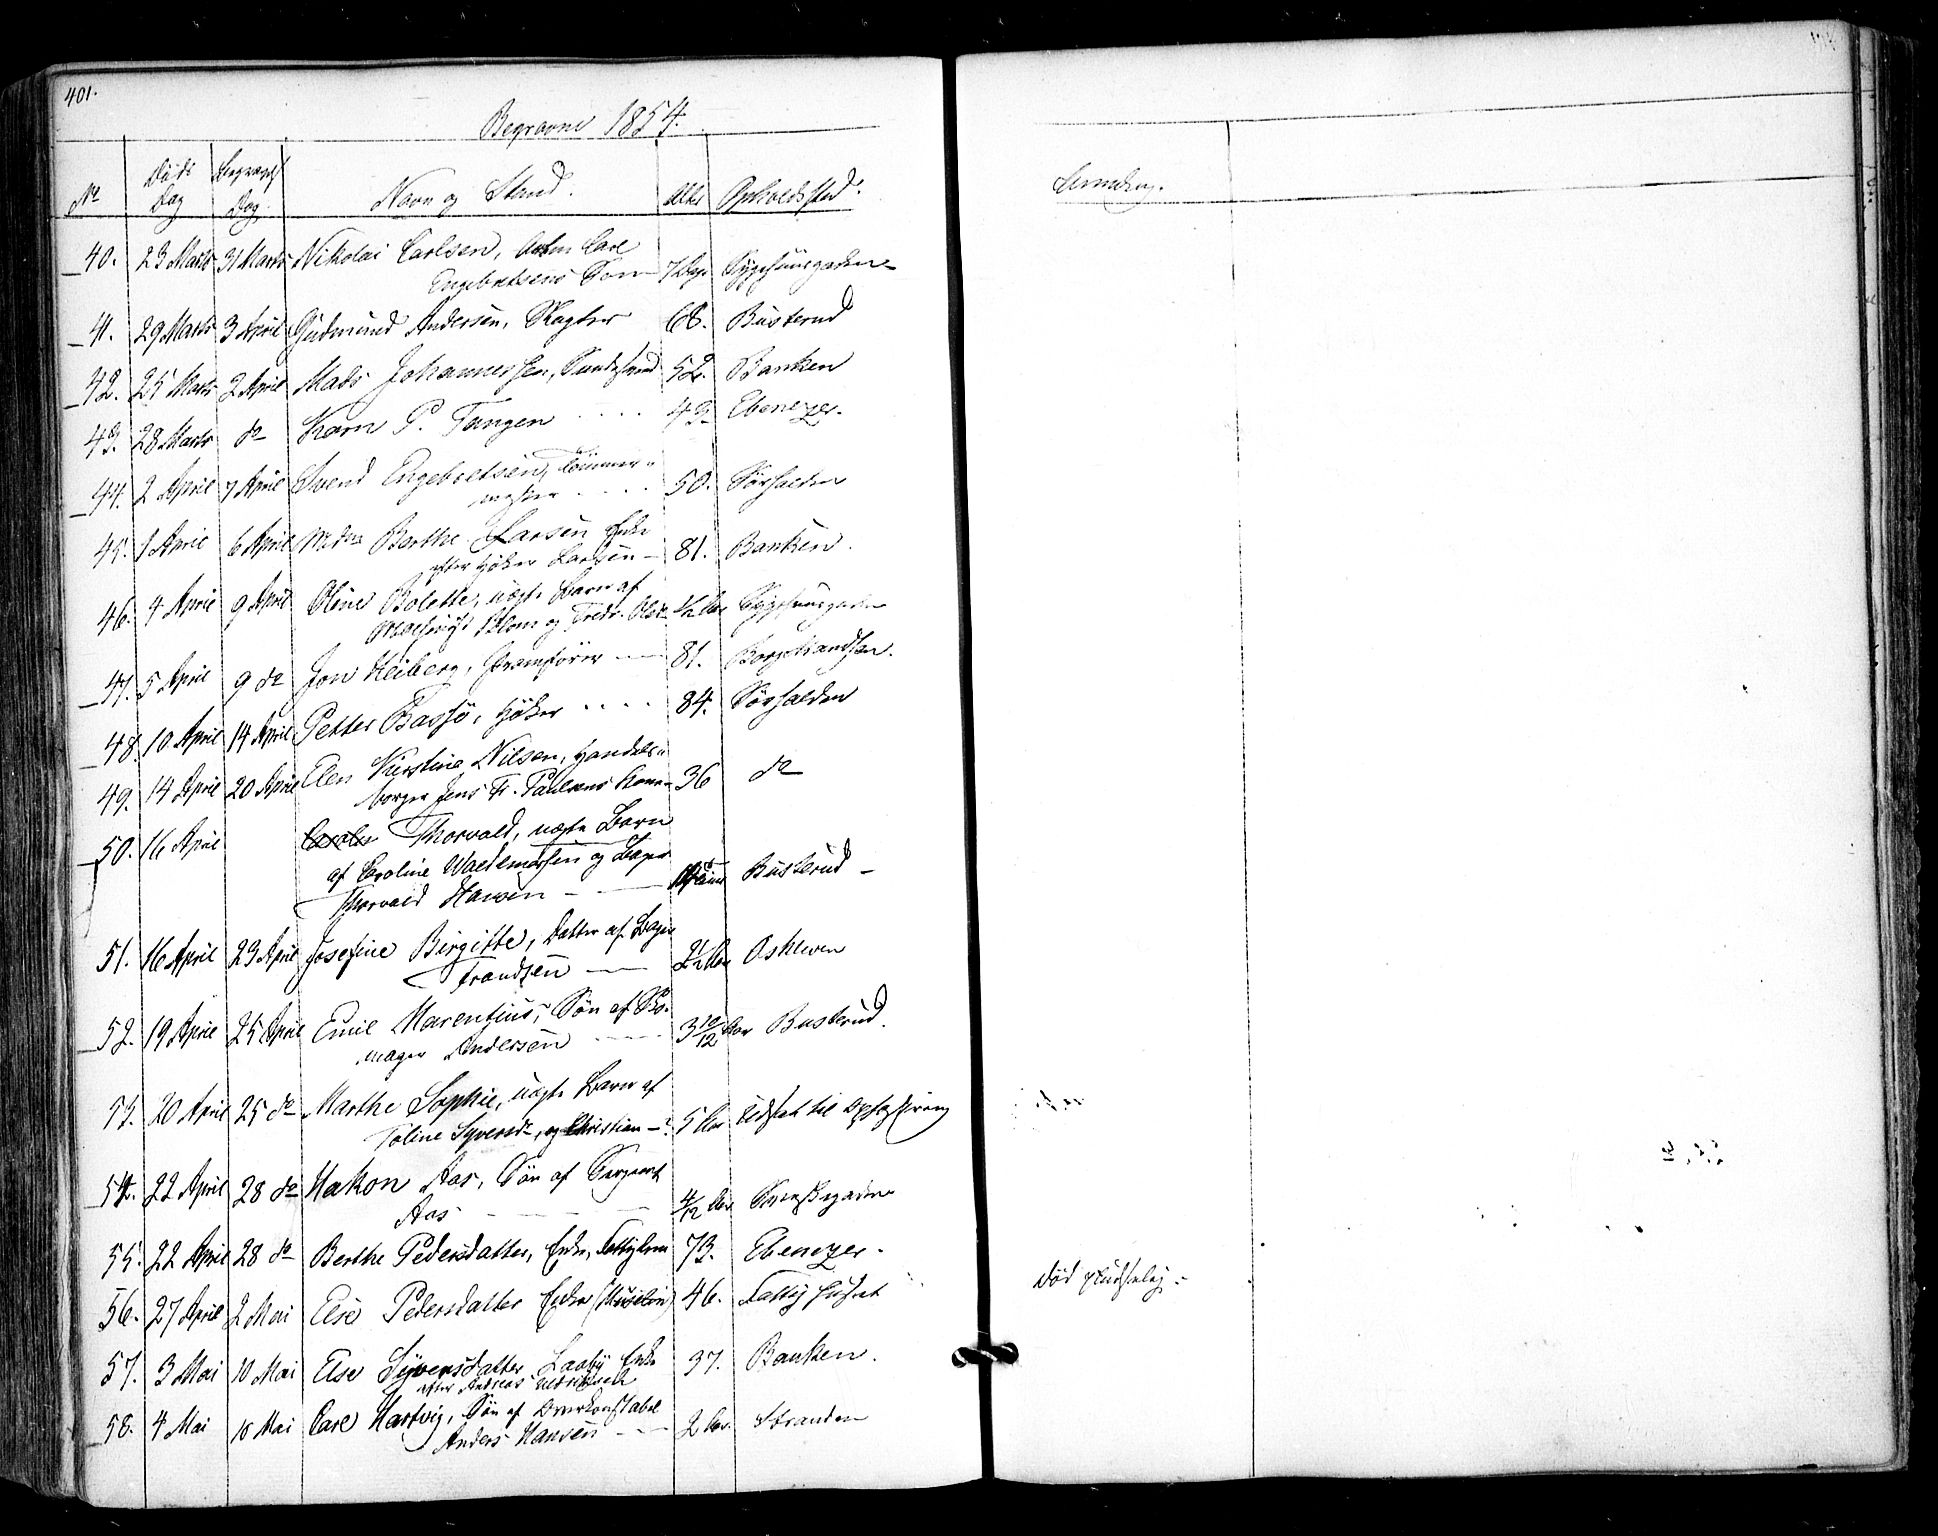 401.
Begravne 1854.
No Døds Dag Begravels Dag Navn og Stand. Alder Opholdssted. Anmerkn.
40. 23 Marts 31 Marts Nikolai Carlsen, Carl
Engebretsens Søn 7 Dage Sygehuusgaden
41. 29 Marts 3 April Gudmund Andersen, 68. Busterud
42. 25 Marts 2 April Mads Johannessen, 52. Banken
43. 28 Marts do Karn P. Tangen 43 Ebenezer.
44. 2 April 7 April Svend Engebretsen, Tømmer-
mester 50. Sørhalden
45. 1 April 6 April Mdme Berthe Larsen Enke
efter Høker Larsen 81. Banken.
46. 4 April 9 April Oline Bolette, uægte Barn af
Blom og Fredr. Olsen 1/2 Aar Sygehuusgaden
47. 5 April 9 do Jon Heiberg, 81. Borgermandsen.
48. 10 April 14 April Petter Bassø, Høker 84. Sørhalden
49. 14 April 20 April Elen Kirstine Nilsen, Handels-
borger Jens Fr. Paulsens Kone 36 do
50. 16 April Thorvald, uægte Barn
af Caroline Waldemarsen og Bager
Thorvald Hansen Busterud
51. 16 April 23 April Josefine Birgitte, Datter af Bager
Frandsen 2 1/2 Aar Oskleven
52. 19 April 25 April Emil Marentius, Søn af Sko-
mager Andersen 3 10/12 Aar Busterud.
53. 20 April 25 do Marthe Sophie, uægte Barn af
Toline Syversd., og Christian 5 Aar Udsat til Opfostring
54. 22 April 28 do Hakon Aas, Søn af Sergeant
Aas 4/12 Aar Svenskegaden
55. 22 April 28 do Berthe Pedersdatter, Enke, Fattiglem 73. Ebenezer.
56. 27 April 2 Mai Else Pedersdatter Enke 46. Fattighuset Død pludselig.
57. 3 Mai 10 Mai Else Syversdatter Laaby Enke
efter Andreas 37. Banken.
58. 4 Mai 10 Mai Carl Hartvig, Søn af Overkonstabel
Anders Hansen 2 Aar. Stranden